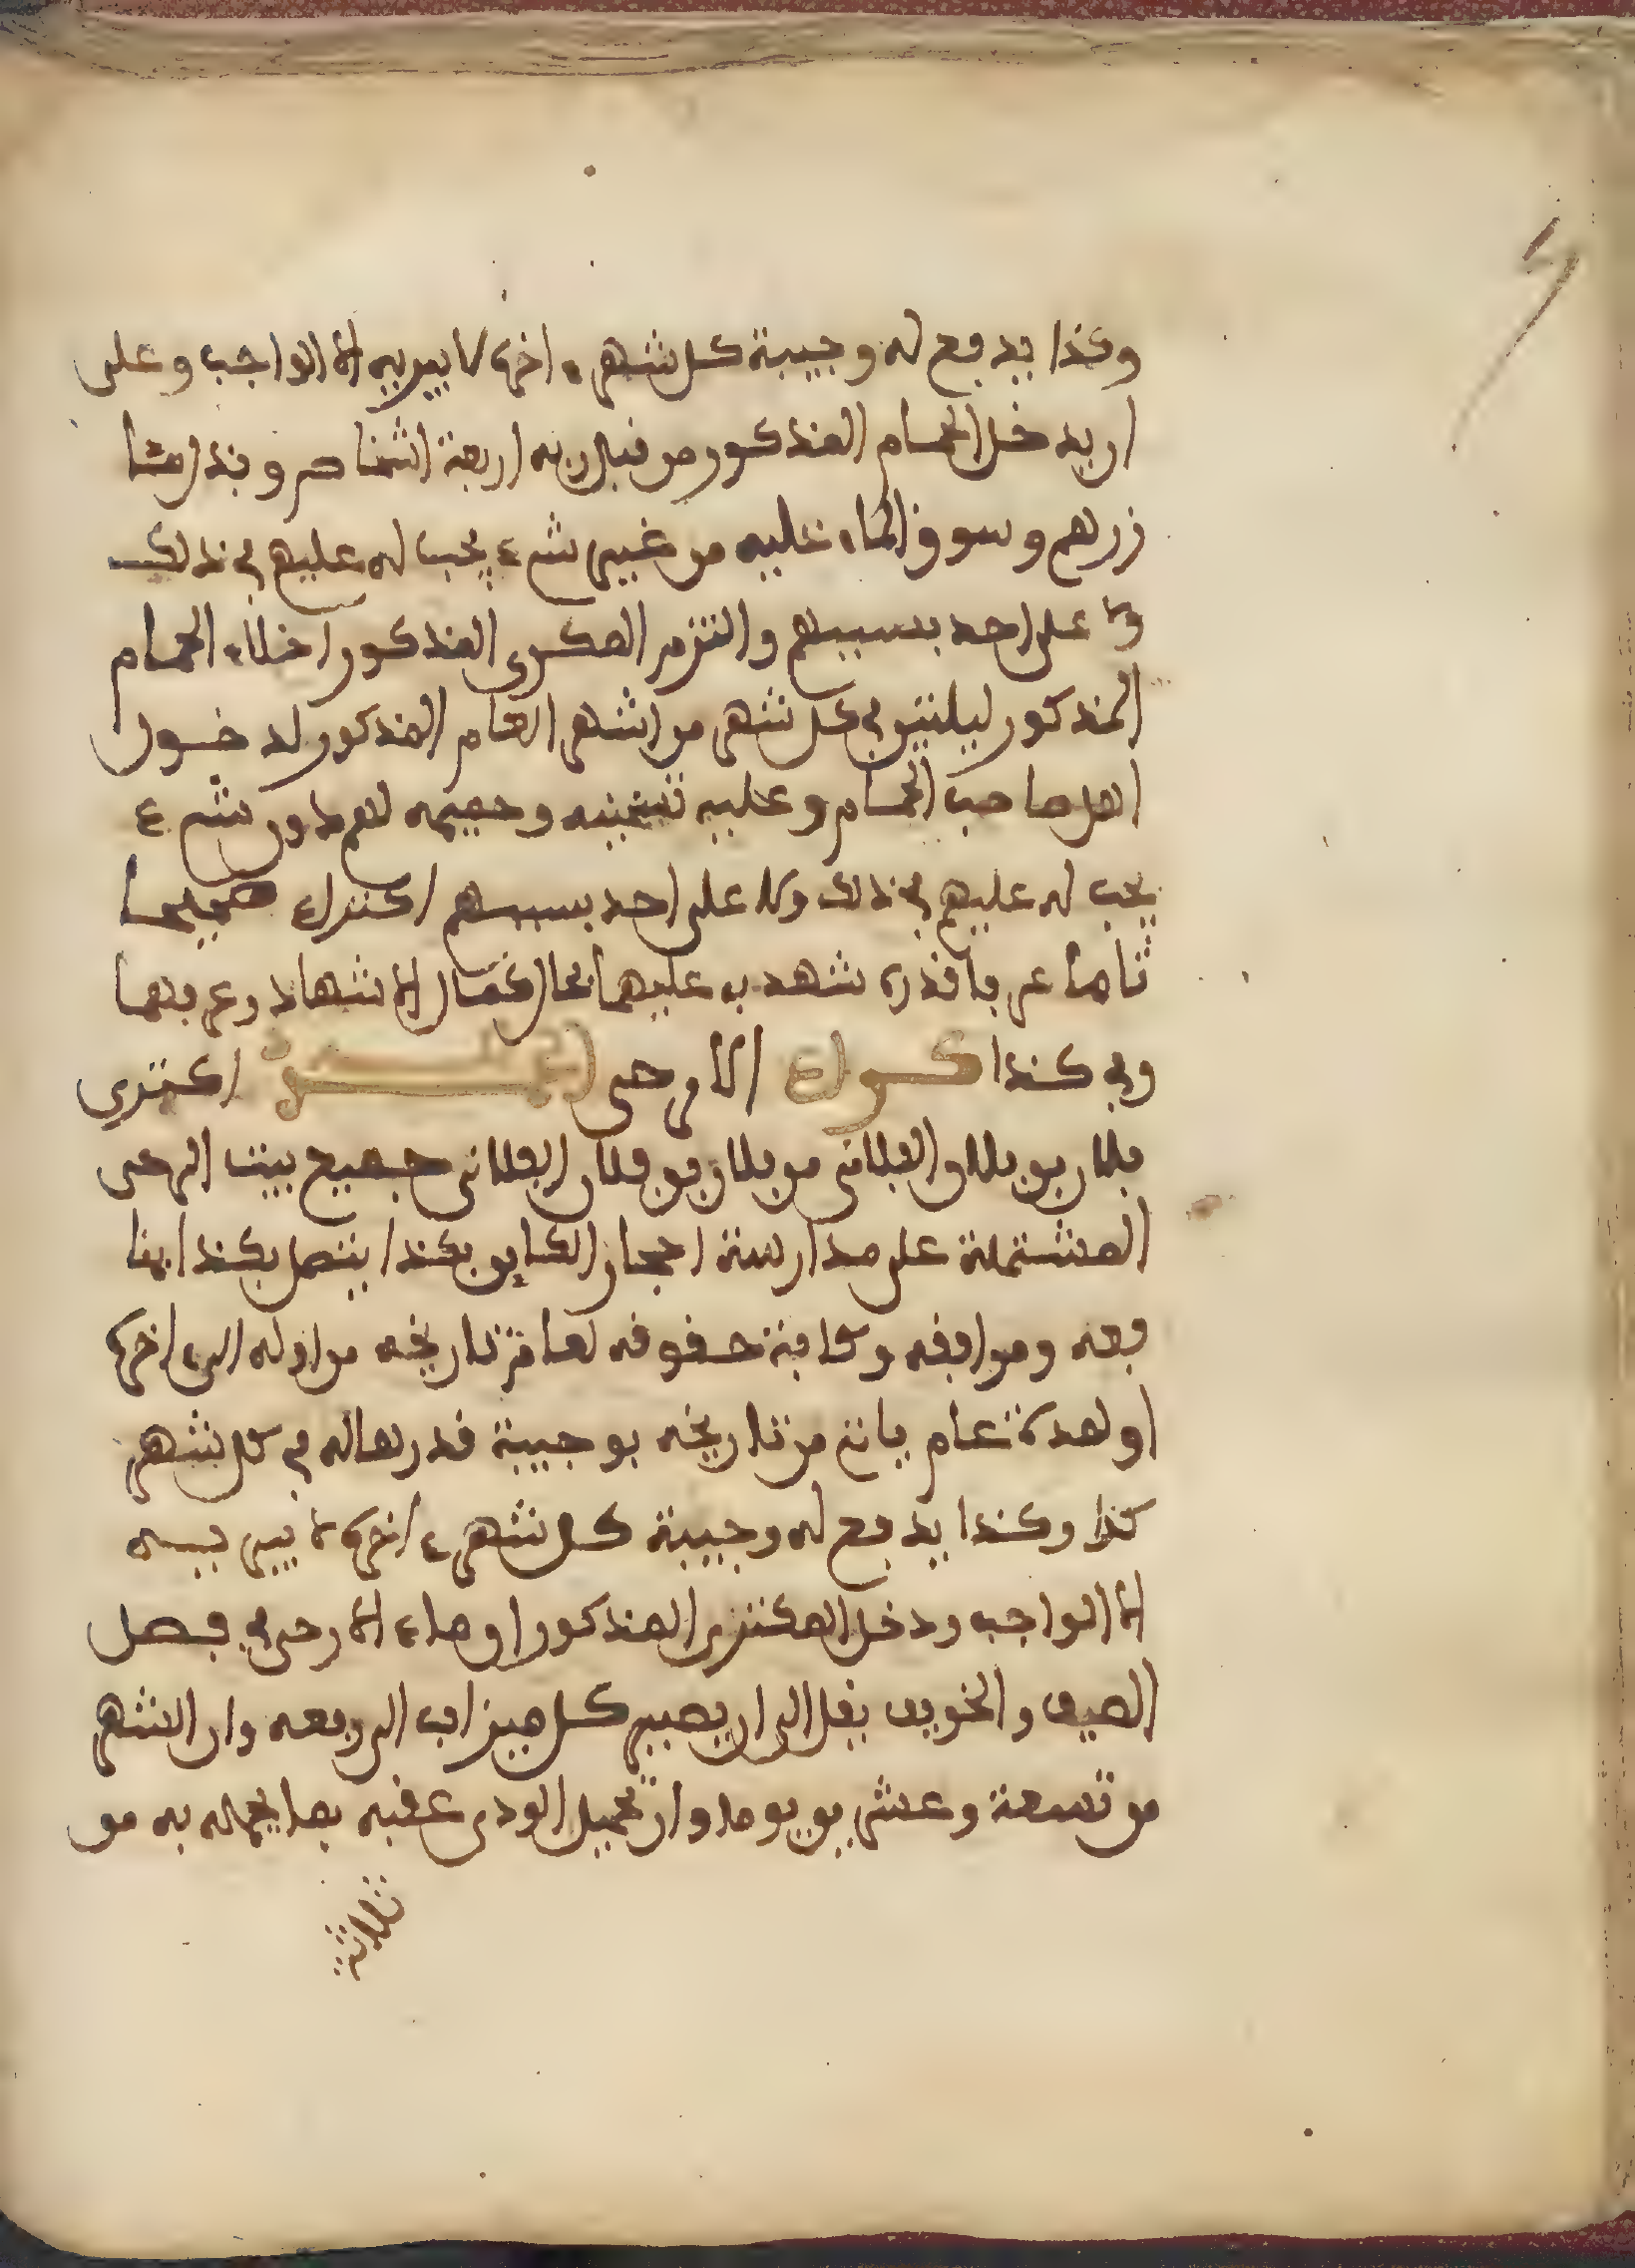 وكذا يدفع له وجيبة كل شهر ءاخره لا يبريه الا الواجب وعلى
ان يدخل الحمام المذكور من قبل ربه اربعة اشخاص وبذل
زرهم وسوق الماء عليه من غير شيء يجب له عليهم في ذلك
ولا على احد بسببهم والتزم المكري المذكور اخلاء الحمام
المذكور ليلتين في كل شهر من اشهر العام المذكور لدخول
اهل صاحب الحمام وعليه تسخينه وحميمه لهم دون شيء
يجب له عليهم في ذلك ولا على احد بسببهم اكتراء صحيحا
تاما عرفا قدره شهد به عليهما بحال كمال الاشهاد وعرفهما
وفي كذا كراء الارحى اكترى
فلان بن فلان الفلاني من فلان بن فلان الفلاني جميع بيت الرحى
المشتملة على مدار ستة احجار الكاين بكذا يتصل بكذا بمنا
فعه ومرافقه وكافة حقوقه لعام تاريخه من اوله الى ءاخره
او لمدة عام ياتي من تاريخه بوجيبة قدرها له في كل شهر
كذا وكذا يدفع له وجيبة كل شهر ءاخره لا يبريه
الا الواجب ودخل المكتري المذكور ان ماء الارحى في فصل
الصيف والخريف يقل الى ان يصير كل ميزاب الى ربعه وان الشهر
من تسعة وعشرين يوما وان تحميل الودي عقبه بما يحمله به من
ثلاثة